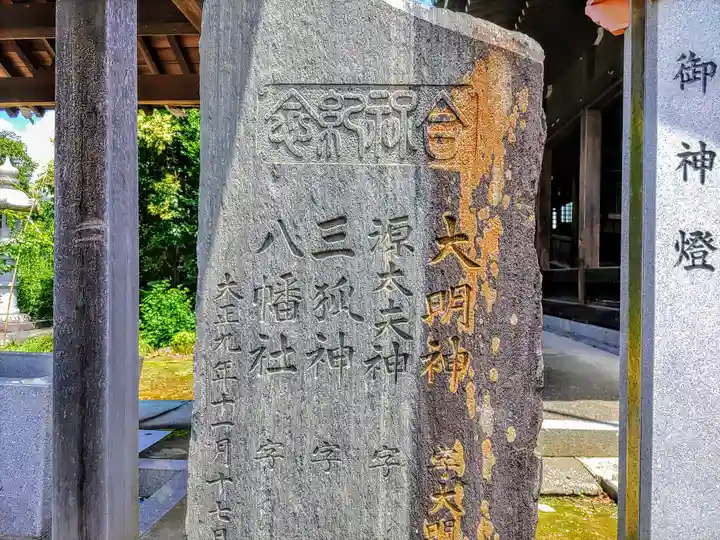 御神燈
合祀紀念
大明神 字大明
源太夫神 字
三狐神 字
八幡社 字
大正九年十一月十七日